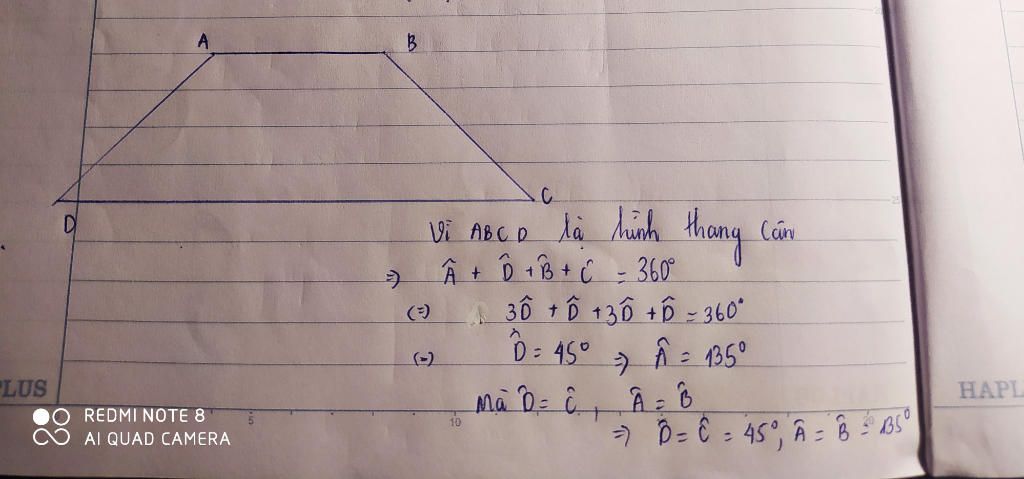 A B
D C
Vì ABCD là hình thang cân
=> Â + D̂ + B̂ + Ĉ = 360°
(=) 3D̂ + D̂ + 3D̂ + D̂ = 360°
(=) D̂ = 45° => Â = 135°
Mà D̂ = Ĉ, Â = B̂
=> D̂ = Ĉ = 45°, Â = B̂ = 135°
PLUS
HAPL
5 10 20
25
REDMI NOTE 8
AI QUAD CAMERA